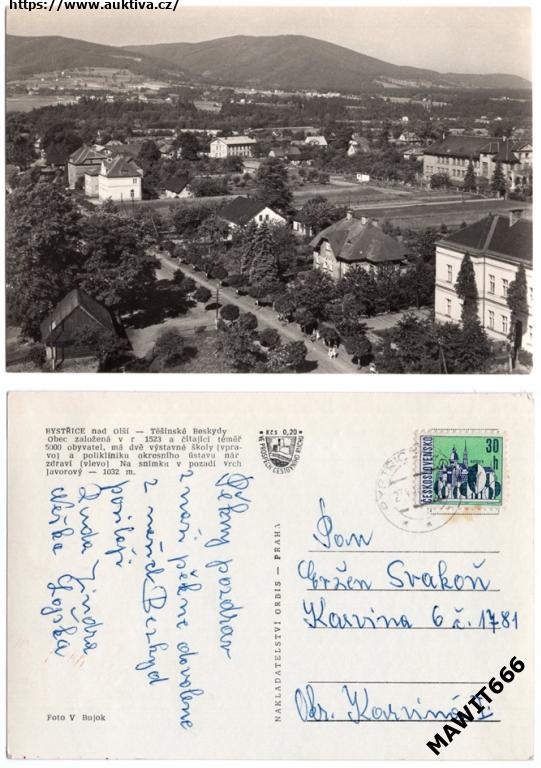 https://www.auktiva.cz/
BYSTŘICE nad Olší — Těšínské Beskydy
Obec založená v r 1523 a čítající téměř
5000 obyvatel, má dvě výstavné školy (vpra-
vo) a polikliniku okresního ústavu nár
zdraví (vlevo) Na snímku v pozadí vrch
Javorový — 1032 m.
Kčs 0,20
VE PROSPĚCH CESTOVNÍHO RUCHU
30 h
ČESKOSLOVENSKO
Pěkný pozdrav
z naší pěkné dovolené
z našich Beskyd
posílají
Ruda Jindra
NAKLADATELSTVÍ ORBIS — PRAHA
Pan
Eržén Svakoň
Karvina 6 č. 1781
Okr. Karviná
Foto V Bujok
MAWIT666